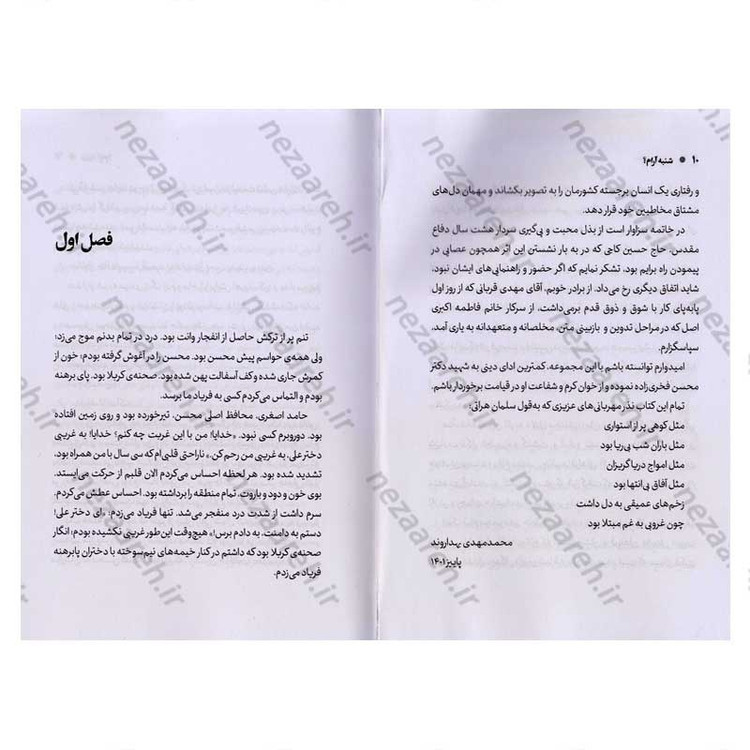 ۱۰ ● شنبه آرام۱
و رفتاری یک انسان برجسته کشورمان را به تصویر بکشاند و مهمان دل‌های
مشتاق مخاطبین خود قرار دهد.
در خاتمه سزاوار است از بذل محبت و پی‌گیری سردار هشت سال دفاع
مقدس، حاج حسین کاجی که در به بار نشستن این اثر همچون عصایی در
پیمودن راه برایم بود، تشکر نمایم که اگر حضور و راهنمایی‌های ایشان نبود،
شاید اتفاق دیگری رخ می‌داد. از برادر خوبم، آقای مهدی قربانی که از روز اول
پابه‌پای کار با شوق و ذوق قدم برمی‌داشت، از سرکار خانم فاطمه اکبری
اصل که در مراحل تدوین و بازبینی متن، مخلصانه و متعهدانه به یاری آمد،
سپاسگزارم.
امیدوارم توانسته باشم با این مجموعه، کمترین ادای دینی به شهید دکتر
محسن فخری‌زاده نموده و از خوان کرم و شفاعت او در قیامت برخوردار باشم.
تمام این کتاب نذر مهربانی‌های عزیزی که به‌قول سلمان هراتی؛
مثل کوهی پر از استواری
مثل باران شب بی‌ریا بود
مثل امواج دریا گریزان
مثل آفاق بی‌انتها بود
زخم‌های عمیقی به دل داشت
چون غروبی به غم مبتلا بود
محمدمهدی بهداروند
پاییز ۱۴۰۱
فصل اول
تنم پر از ترکش حاصل از انفجار وانت بود. درد در تمام بدنم موج می‌زد؛
ولی همه‌ی حواسم پیش محسن بود. محسن را در آغوش گرفته بودم؛ خون از
کمرش جاری شده و کف آسفالت پهن شده بود. صحنه‌ی کربلا بود. پای برهنه
بودم و التماس می‌کردم کسی به فریاد ما برسد.
حامد اصغری، محافظ اصلی محسن، تیرخورده بود و روی زمین افتاده
بود. دوروبرم کسی نبود. «خدایا! من با این غربت چه کنم؟ خدایا! به غریبی
دختر علی، به غریبی من رحم کن.» ناراحتی قلبی‌ام که سی سال با من همراه بود،
تشدید شده بود. هر لحظه احساس می‌کردم الان قلبم از حرکت می‌ایستد.
بوی خون و دود و باروت، تمام منطقه را برداشته بود. احساس عطش می‌کردم.
سرم داشت از شدت درد منفجر می‌شد. تنها فریاد می‌زدم: «ای دختر علی!
دستم به دامنت. به دادم برس!» هیچ‌وقت این‌طور غریبی نکشیده بودم؛ انگار
صحنه‌ی کربلا بود که داشتم در کنار خیمه‌های نیم‌سوخته با دختران پابرهنه
فریاد می‌زدم.
nezaareh.ir